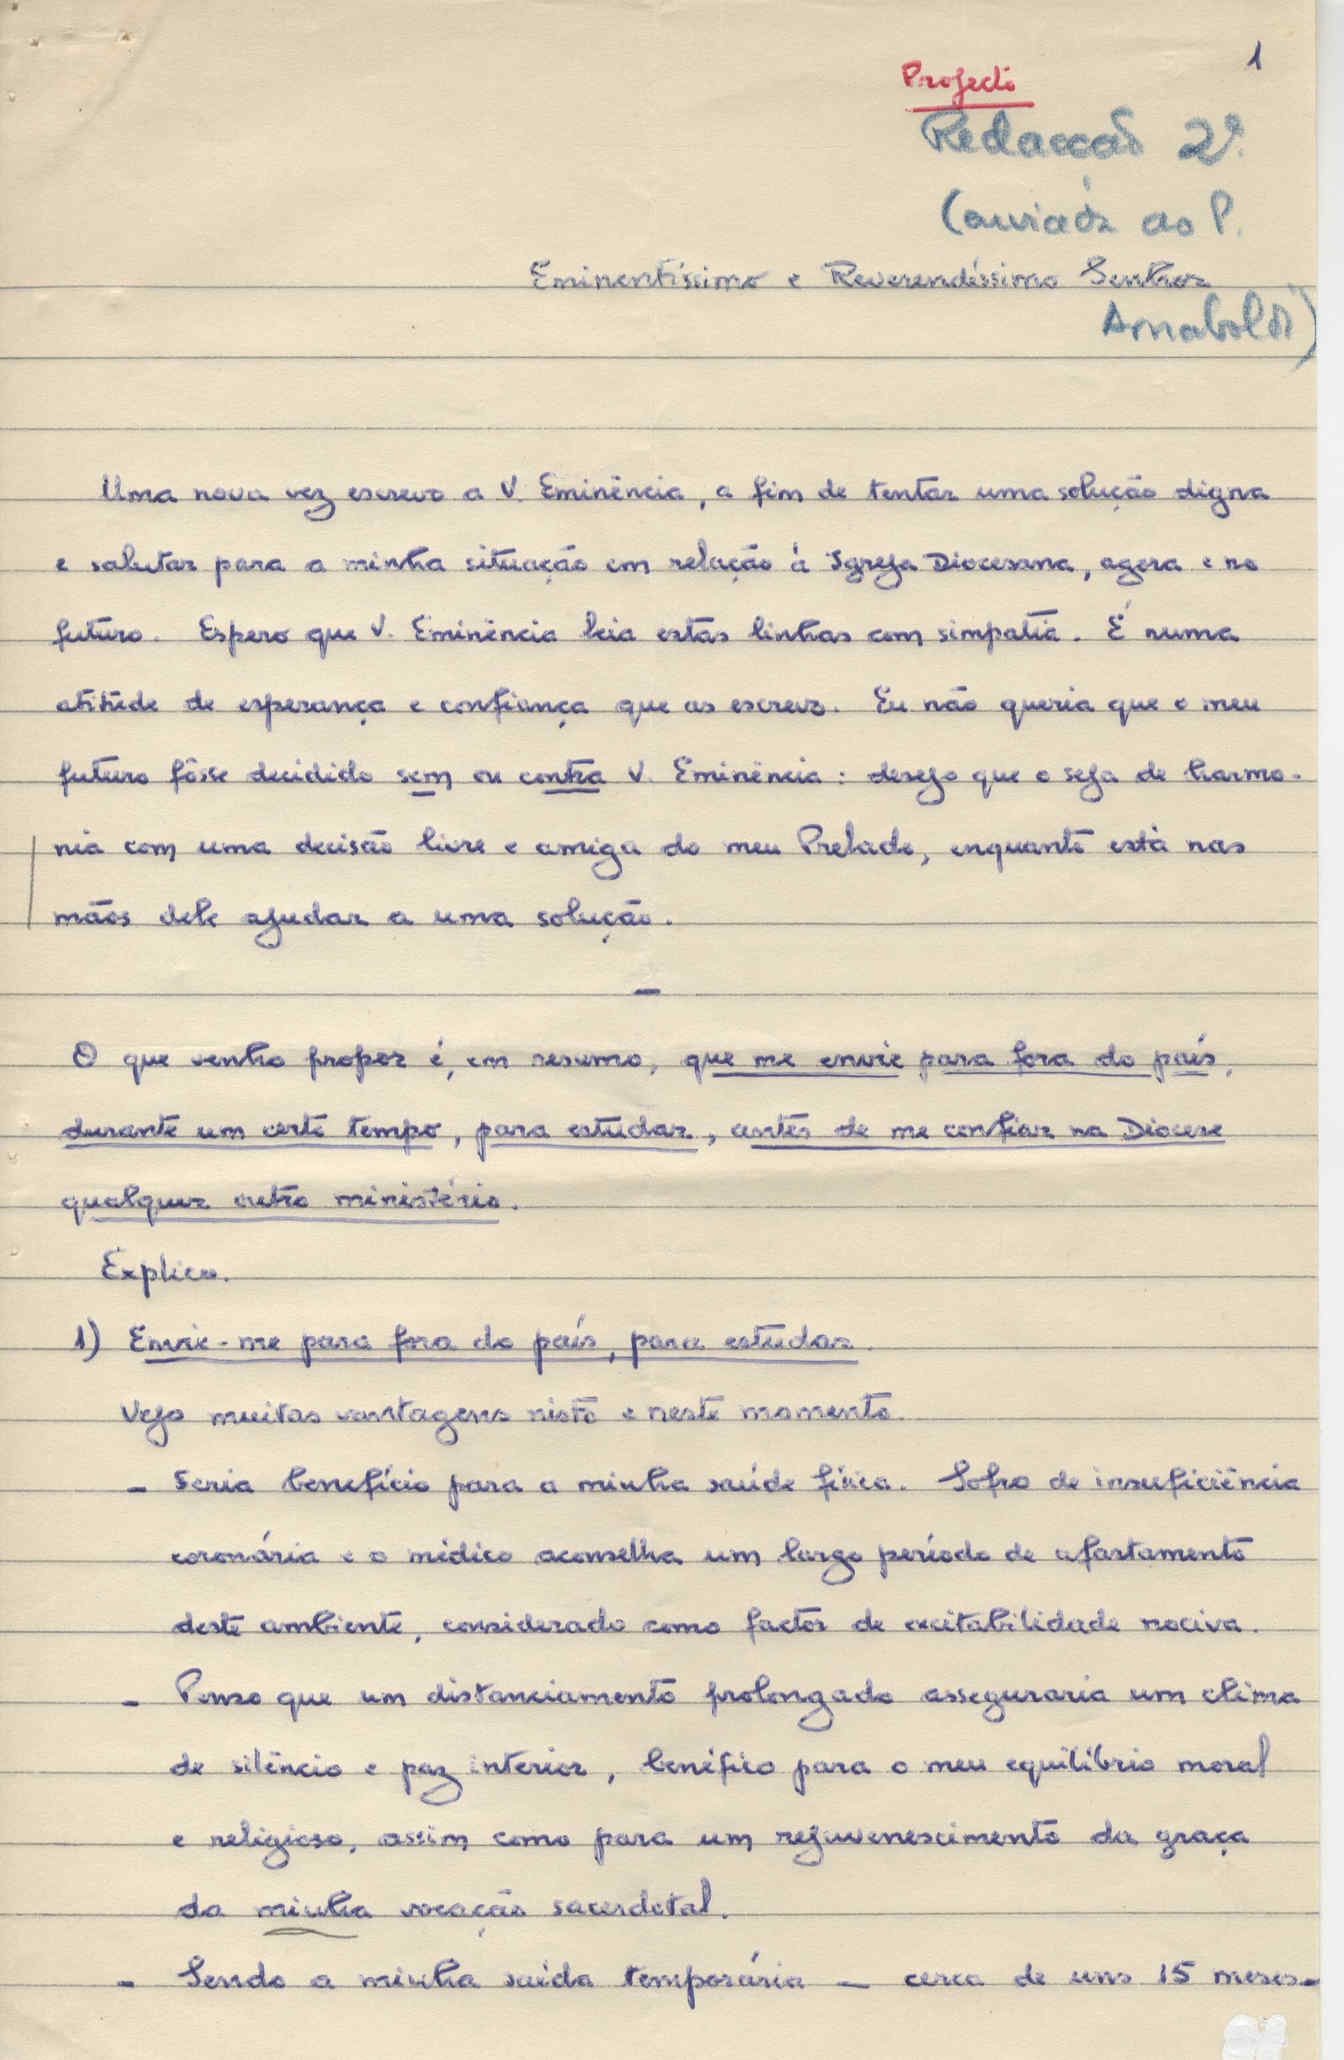 1
Projecto
Redacção 2ª.
(enviada ao P.
Eminentíssimo e Reverendíssimo Senhor
Arnaboldi)
Uma nova vez escrevo a V. Eminência, a fim de tentar uma solução digna
e salutar para a minha situação em relação à Igreja Diocesana, agora e no
futuro. Espero que V. Eminência leia estas linhas com simpatia. É numa
atitude de esperança e confiança que as escrevo. Eu não queria que o meu
futuro fôsse decidido sem ou contra V. Eminência: desejo que o seja de harmo-
nia com uma decisão livre e amiga do meu Prelado, enquanto está nas
mãos dele ajudar a uma solução.
—
O que venho propor é, em resumo, que me envie para fora do país,
durante um certo tempo, para estudar, antes de me confiar na Diocese
qualquer outro ministério.
Explico.
1) Envie-me para fora do país, para estudar.
Vejo muitas vantagens nisto e neste momento.
- Seria benefício para a minha saúde física. Sofro de insuficiência
coronária e o médico aconselha um largo período de afastamento
deste ambiente, considerado como factor de excitabilidade nociva.
- Penso que um distanciamento prolongado asseguraria um clima
de silêncio e paz interior, benéfico para o meu equilíbrio moral
e religioso, assim como para um rejuvenescimento da graça
da minha vocação sacerdotal.
- Sendo a minha saída temporária — cerca de uns 15 meses—